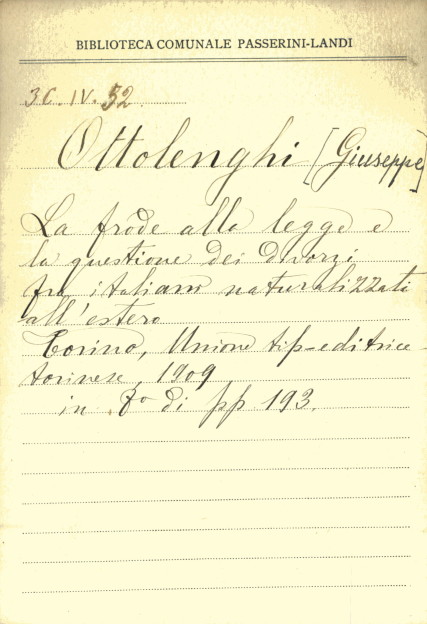 BIBLIOTECA COMUNALE PASSERINI-LANDI
3C.IV.52
Ottolenghi [Giuseppe]
La frode alla legge e
la questione dei divorzi
fra italiani naturalizzati
all'estero
Torino, Unione tip-editrice
torinese, 1909
in 8º di pp 193.